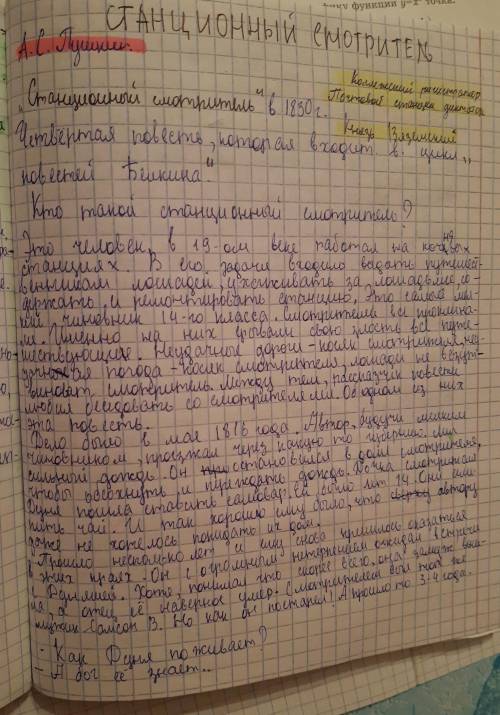 СТАНЦИОННЫЙ СМОТРИТЕЛЬ
А.С. Пушкин.
Коллежский регистратор
Почтовой станции диктатор
Князь Вяземский
„Станционный смотритель" в 1830г.
Четвёртая повесть, которая входит в цикл „
повестей Белкина"
Кто такой станционный смотритель?
Это человек в 19-ом веке работал на
станциях. В его задачи входило выдать путешест-
венникам лошадей, ухаживать за лошадьми, со-
держать и ремонтировать станцию. Это самый мел-
кий чиновник 14-го класса. Смотрителя все проклина-
ли. Именно на них срывали свою злость все путе-
шествующие. Неудачные дороги - косяк смотрителя,
погода - косяк смотрителя, лошади не везут
виноват смотритель. Между тем, рассказчик повести
любил беседовать со смотрителями. Об одном из них
эта повесть.
Дело было в мае 1816 года. Автор, будучи мелким
чиновником, проезжал через какую то губернию. Лил
сильный дождь. Он остановился в доме смотрителя,
чтобы обсохнуть и переждать дождь. Дочка смотрителя
Дуня пошла ставить самовар. Ей было лет 14. Они
пить чай. И так хорошо ему было, что автору
даже не хотелось покидать их дом.
Прошло несколько лет и ему снова пришлось оказаться
в этих краях. Он с огромным нетерпением ожидал встречи
с Дуняшей. Хотя, понимал что скорее всего, она замуж вы-
шла, а отец её наверное умер. Смотрителем был тот же
мужик Самсон В. Но как он постарел! А прошло то 3-4 года.
- Как Дуня поживает?
- А бог её знает..